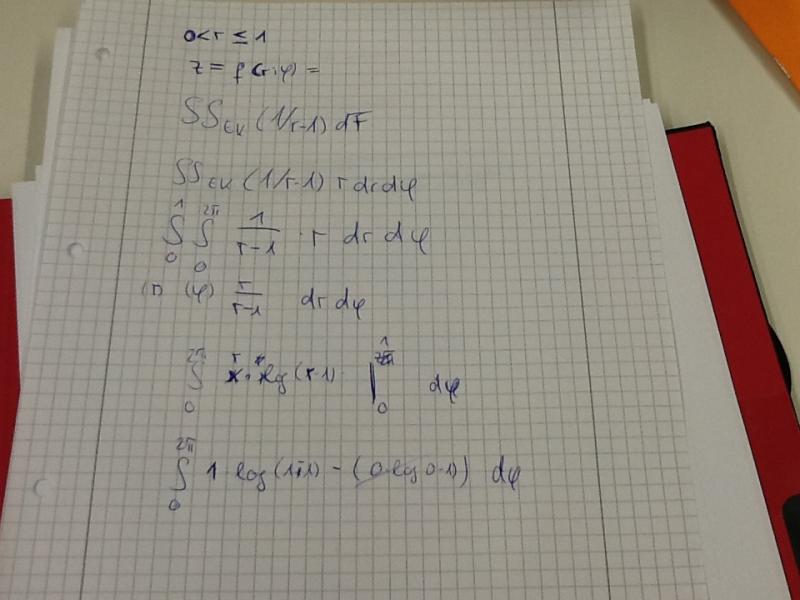 0<r≤1
z = f(r,φ) =
∫∫EK (1/r-1) dF
∫∫EK (1/r-1) r dr dφ
∫₀¹ ∫₀²π 1/(r-1) · r dr dφ
(r) (φ) r/(r-1) dr dφ
∫₀²π r · log(r-1) |₀¹ dφ
∫₀²π 1 log(1-1) - (0·log 0-1) dφ